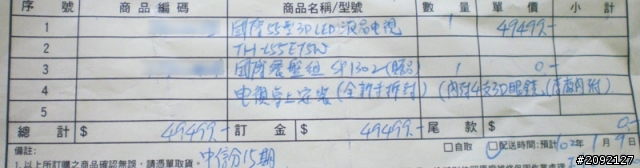 序號 商品編碼 商品名稱/型號 數量 單價 小計
1 國際55型3D LED液晶電視 1 49499.-
2 TH-L55ET5W
3 國際 SP1302(贈品) 1 0.-
4 電視桌上安裝(全新未拆封)(內附4支3D眼鏡,
5
總計 $ 49499.- 訂金 $ 49499.- 尾款 $ 0.-
備註: □自取 □配送時間:預計102年1月9日
1.以上所訂購之商品確認無誤,請憑單取貨。 中信分15期
#2092127